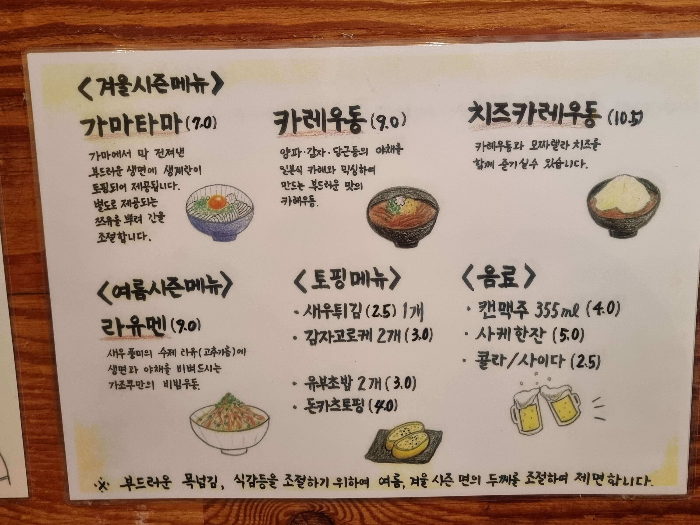 <겨울시즌메뉴>
가마타마 (7.0)
가마에서 막 건져낸
부드러운 생면에 생계란이
토핑되어 제공됩니다.
별도로 제공되는
쯔유를 뿌려 간을
조절합니다.
카레우동 (9.0)
양파·감자·당근등의 야채를
일본식 카레와 믹싱하여
만드는 부드러운 맛의
카레우동.
치즈카레우동 (10.5)
카레우동과 모짜렐라 치즈를
함께 즐기실수 있습니다.
<여름시즌메뉴>
라유멘 (9.0)
새우 풍미의 수제 라유(고추기름)에
생면과 야채를 비벼드시는
가조쿠만의 비빔우동
<토핑메뉴>
· 새우튀김 (2.5) 1개
· 감자고로케 2개 (3.0)
· 유부초밥 2개 (3.0)
· 돈카츠토핑 (4.0)
<음료>
· 캔맥주 355ml (4.0)
· 사케한잔 (5.0)
· 콜라/사이다 (2.5)
※ 부드러운 목넘김, 식감등을 조절하기 위하여 여름, 겨울 시즌 면의 두께를 조절하여 제면합니다.